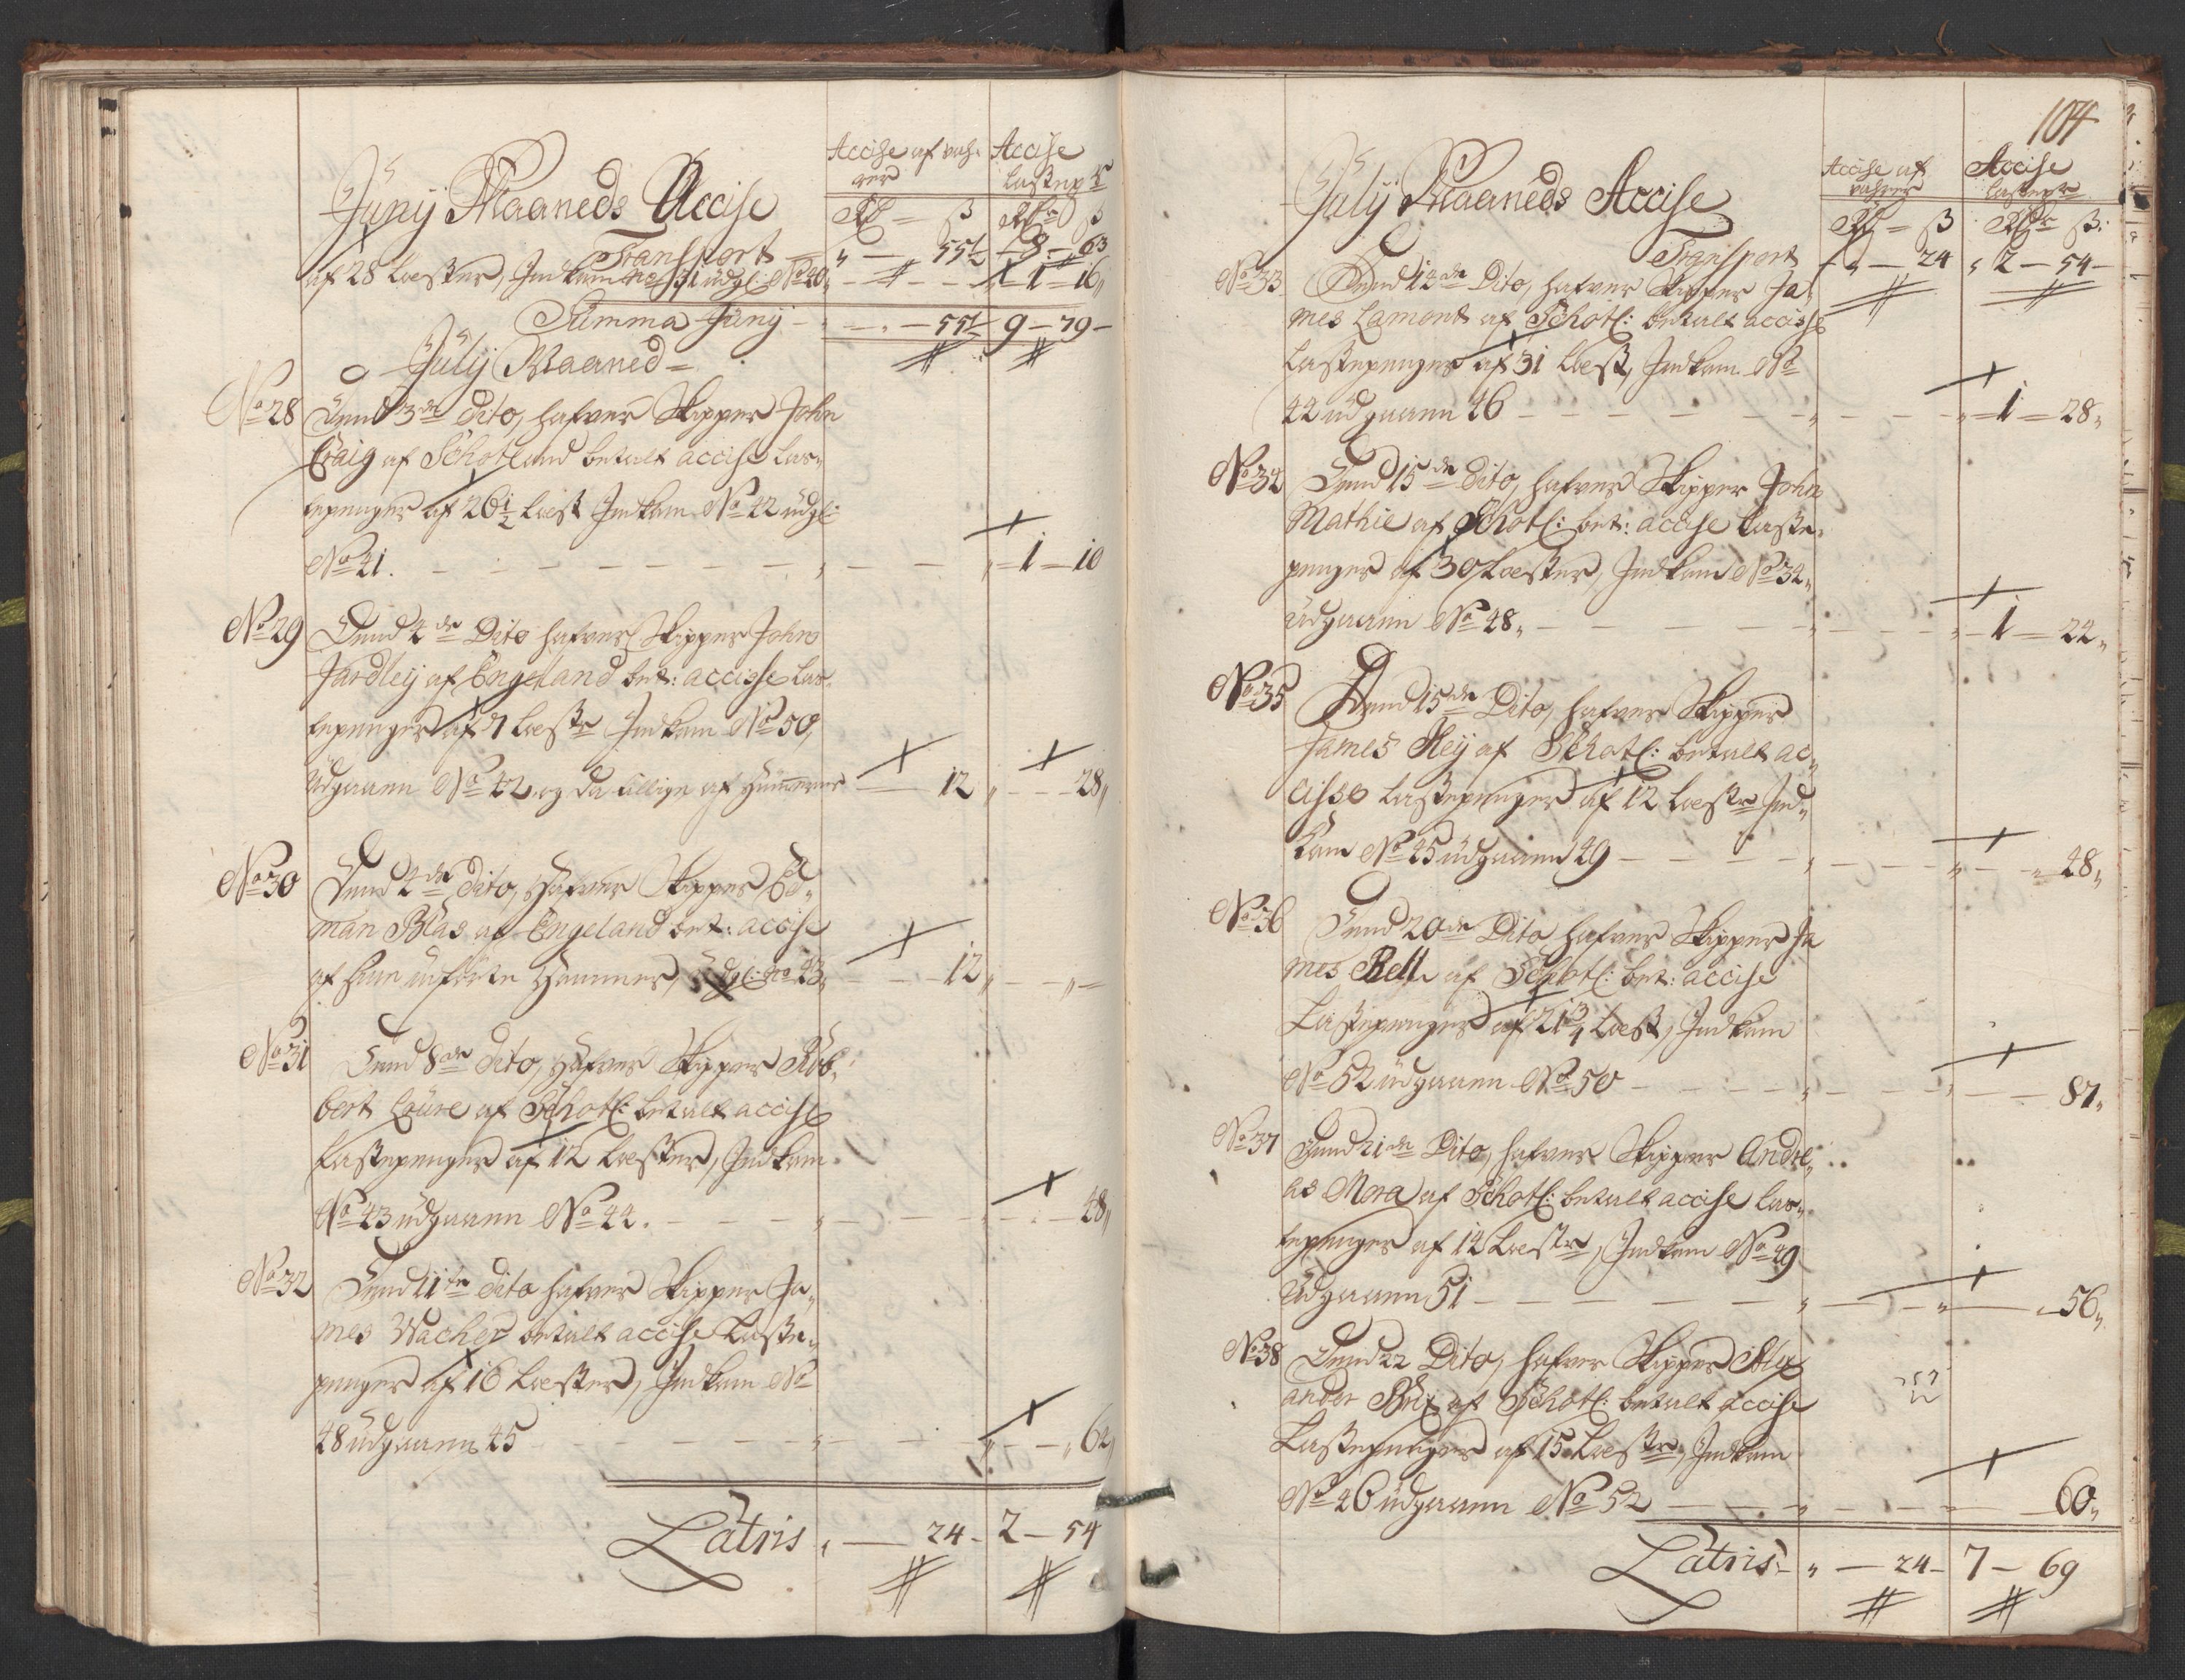 Junij Maaneds Accise
Accise af vah-
rer
Accise
Lastep
Rd ß Rdr ß
Transport „ — 55½ 8 - 63
af 28 Læster, Indkom No 31 udgl: No 40 „ — 1 - 16„
Summa Junij — 55½ 9 - 79 -
Julij Maaned
No 28 Dend 3de Dito, hafver Skipper John
Craig af Schotland betalt accise Las-
tepenger af 26½ Læst Indkom No 42 udgl:
No 41. „ 1 - 10
No 29 Dend 4de Dito hafver Skipper John
Jardleij af Engeland bet: accisse Las-
tepenger af 7 Læstr Indkom No 50,
Udgaaen No 42, og da tillige af Hummer 12 „ 28„
No 30 Dend 4de Dito, Hafver Skipper Ed-
man Blas af Engeland bet: accise
af Hummer, udgl: No 43, 12„
No 31 Dend 8de Dito, Hafver Skipper Rob-
bert Coure af Schotl: betalt accise
Lastepenger af 12 Læster, Indkom
No 43 udgaaen No 44. 48„
No 32 Dend 11te Dito hafver Skipper Ja-
mes Wacher betalt accise Laste-
penger af 16 Læster, Indkom No
48 udgaaen 45 „ 64„
Latris „ — 24 - 2 - 54
104
Julij Maaneds Accise
Accise af
vahrer
Accise
Lastepr
Rd ß Rdr ß:
Transport „ — 24 „ 2 - 54 -
No 33 Dend 12de Dito, hafver Skipper Ja-
mes Lamont af Schotl: betalt accisse
Lastepenger af 31 Læst, Indkom No
44 udgaaen 46 „ 1 - 28„
No 34 Dend 15de Dito, hafver Skipper John
Mathie af Schotl: bet: accise Laste-
penger af 30 Læster, Indkom No 34„
udgaaen No 48„ 1 - 24„
No 35 Dend 15de Dito, hafver Skipper
James Keij af Schotl: betalt ac-
cisse Lastepenger af 12 Læstr Ind-
kom No 45 udgaaen 49 48„
No 36 Dend 20de Dito hafver Skipper Ja
mes Bell af Schotl: bet: accise
Lastepenger af 21¾ Læst, Indkom
No 52 udgaaen No 50 87„
No 37 Dend 21de Dito, hafver Skipper Andre-
as Mora af Schotl: betalt accise Las-
tepenger af 14 Læstr, Indkom No 49
Udgaaen 51 56„
No 38 Dend 22 Dito, hafver Skipper Alex
ander Brix af Schotl: betalt accise
Lastepenger af 15 Læstr, Indkom
No 46 udgaaen No 52 60„
Latris „ — 24 - 7 - 69